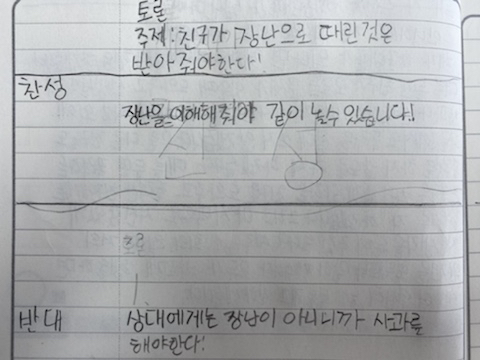 토론
주제:친구가 장난으로 때린것은
받아줘야한다!
찬성
장난을 이해해줘야 같이 놀수있습니다!
반대 상대에게는 장난이 아니니까 사과를
해야한다!